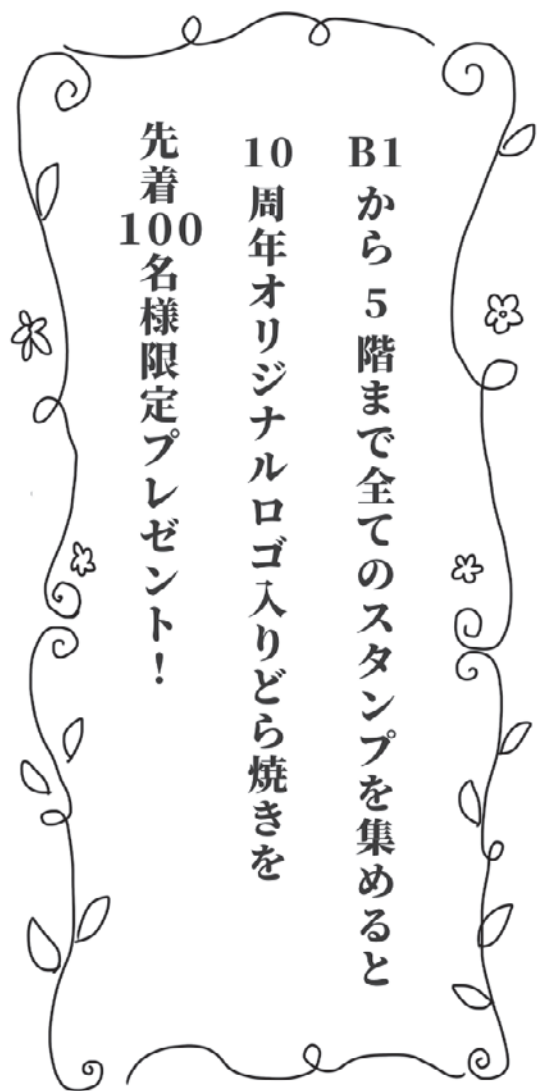 B1から5階まで全てのスタンプを集めると
10周年オリジナルロゴ入りどら焼きを
先着100名様限定プレゼント！